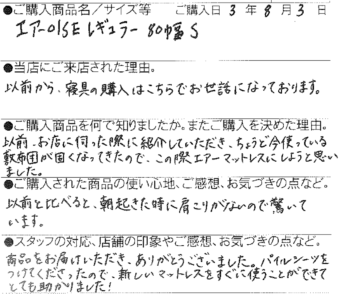 ●ご購入商品名／サイズ等　ご購入日 3 年 8 月 3 日
エアー01SE レギュラー 80幅 S
●当店にご来店された理由。
以前から、寝具の購入はこちらでお世話になっております。
●ご購入商品を何で知りましたか。またご購入を決めた理由。
以前、お店に伺った際に紹介していただき、ちょうど今使っている
敷布団が固くなってきたので、この際エアーマットレスにしようと思い
ました。
●ご購入された商品の使い心地、ご感想、お気づきの点など。
以前と比べると、朝起きた時に肩こりがないので驚いて
います。
●スタッフの対応、店舗の印象やご感想、お気づきの点など。
商品をお届けいただき、ありがとうございました。パイルシーツを
つけてくださったので、新しいマットレスをすぐに使うことができて
とても助かりました！